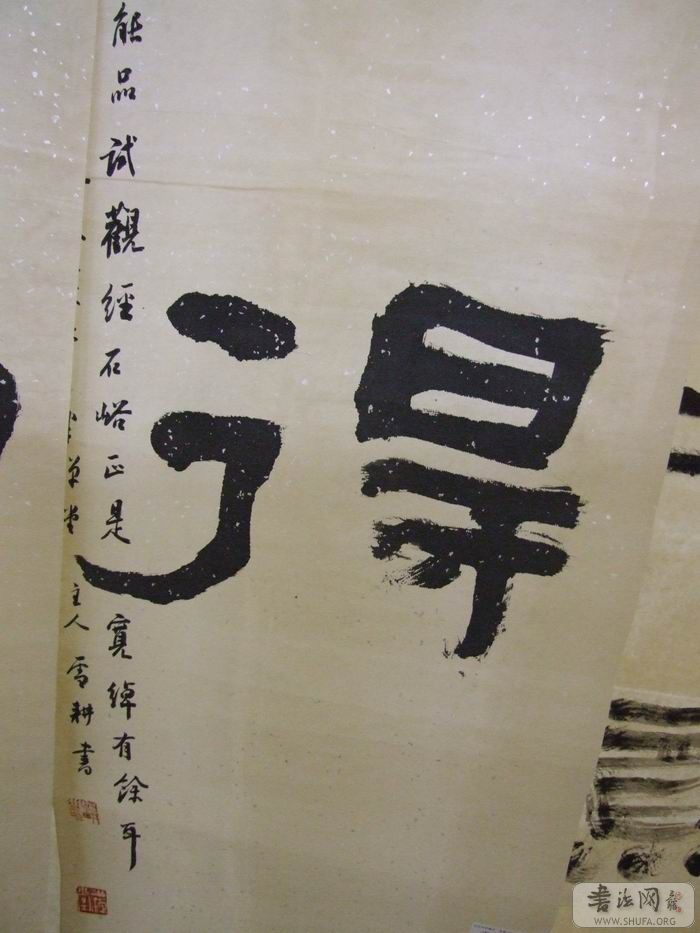 得
能品試觀經石峪正是寬綽有餘耳
草堂主人雪耕書
书法网
WWW.SHUFA.ORG